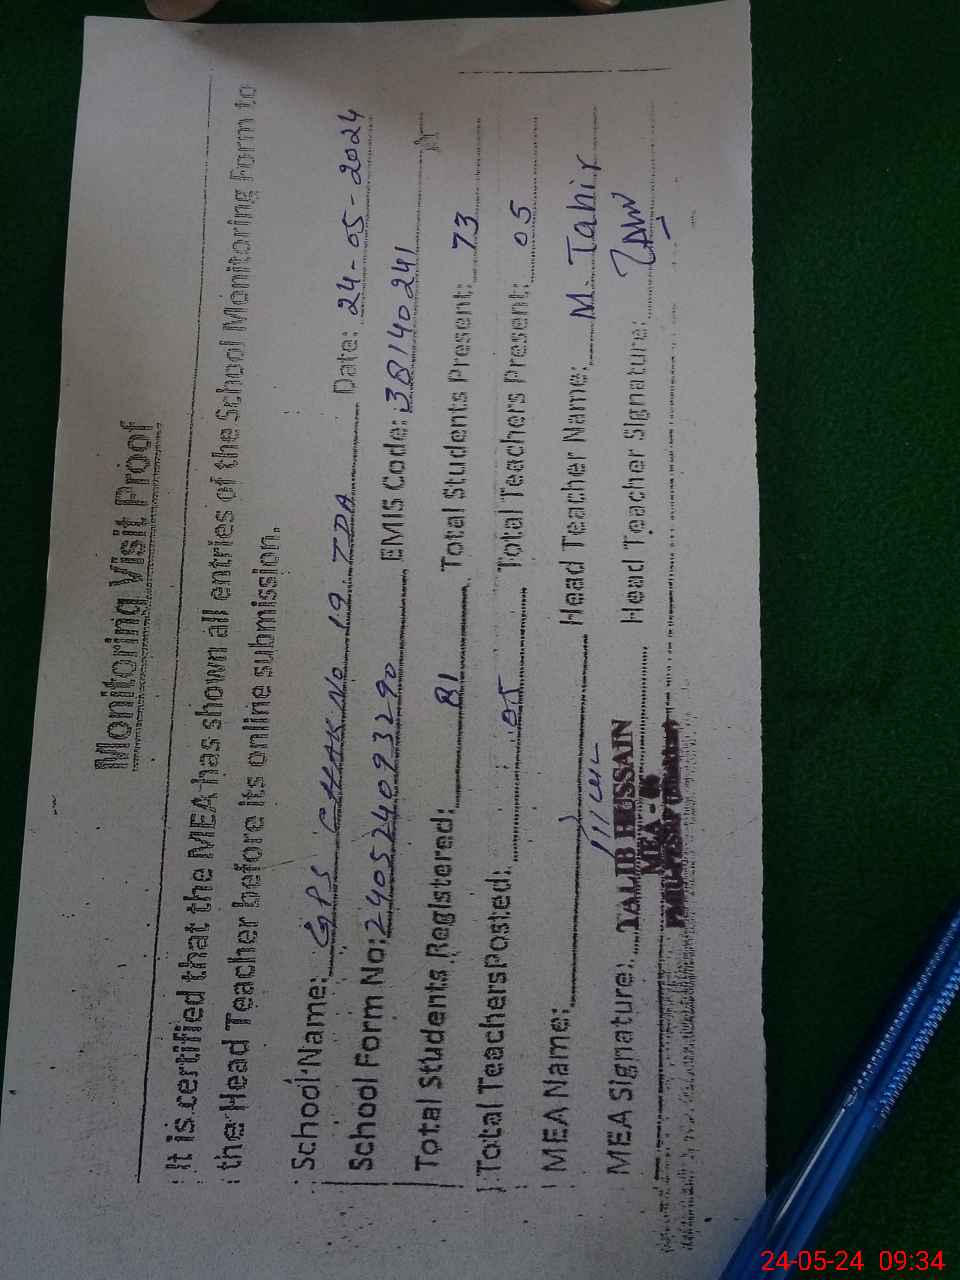 Monitoring Visit Proof
It is certified that the MEA has shown all entries of the School Monitoring Form to
the Head Teacher before its online submission.
School Name: GPS CHAK No 19 TDA Date: 24-05-2024
School Form No: 240524093290 EMIS Code: 38140241
Total Students Registered: 81 Total Students Present: 73
Total Teachers Posted: 05 Total Teachers Present: 05
MEA Name: Head Teacher Name: M. Tahir
MEA Signature: TALIB HUSSAIN Head Teacher Signature:
MEA - 06
24-05-24 09:34